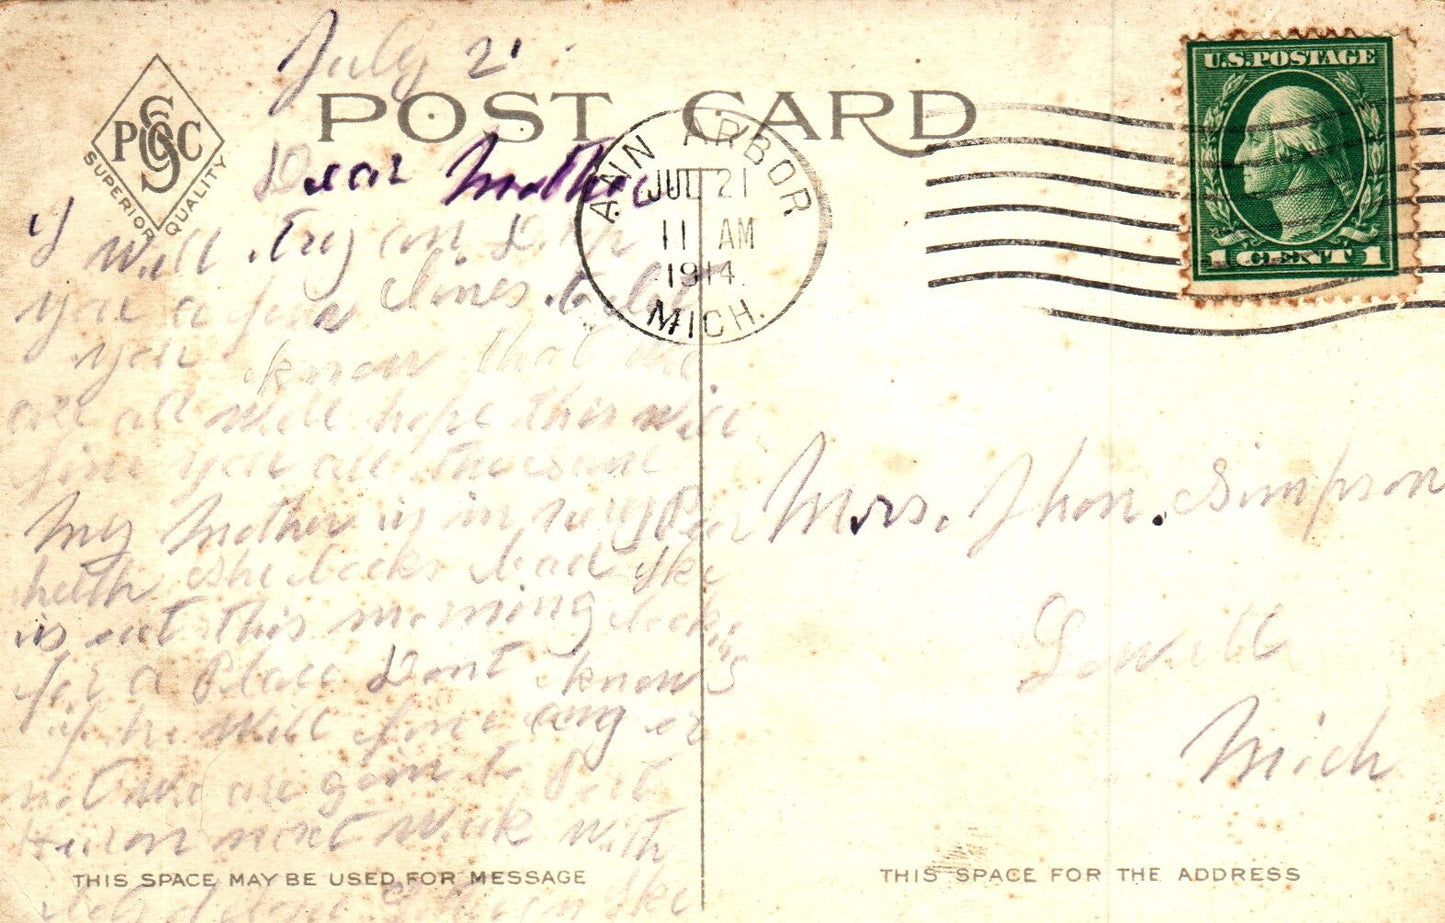 July 21
POST CARD
PSGC
SUPERIOR QUALITY
U.S. POSTAGE
1 CENT 1
ANN ARBOR
JUL 21
11 AM
1914.
MICH.
Dear Mother
I will try an
you a few lines to let
you know that we
are all well hope this will
fine you all the same
My Mother is in very Poor
helth she looks bad
is out this morning looking
for a Place Dont know
if he will fine eng or
not we are goin to Port
Huron next Week with
Mrs. Jhon. Simpson
Dewitt
Mich
THIS SPACE MAY BE USED FOR MESSAGE
THIS SPACE FOR THE ADDRESS